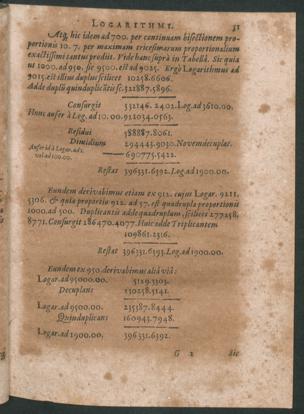 LOGARITHMI. 51
Atq, hic idem ad 700. per continuam bisectionem pro-
portionis 10. 7. per maximam tricesimarum proportionalium
exactissimi tantus prodiit. Vide hanc suprà in Tabellâ. Sic quia
ut 1000. ad 950. sic 9500. est ad 9025. Ergò Logarithmus ad
9025. est illius duplus scilicet 10258.6606.
Adde dupli quinduplicatis sc. 321887.5896.
Consurgit 332146.2402. Log. ad 3610.00.
Hunc aufer à Log. ad 10.00. 921034.0563.
Residui 588887.8061.
Dimidium 294443.9030. Novemdecuplat.
Aufer id à Logar. ad 2.
vel ad 100.00. 690775.5422.
Restat 396331.6392. Log. ad 1900.00.
Eundem derivabimus etiam ex 912. cujus Logar. 9211.
5306. & quia proportio 912. ad 57. est quadrupla proportionis
1000. ad 500. Duplicatis adde quadruplum, scilicet 277258.
8771. Consurgit 286470.4077. Huic adde Triplicantem
109861.2316.
Restat 396331.6393. Log. ad 1900.00.
Eundem ex 950. derivabimus aliâ viâ:
Logar. ad 95000.00. 5129.3303.
Decuplans 230258.5141.
Logar. ad 9500.00. 235387.8444.
Quinduplicans 160943.7948.
Logar. ad 1900.00. 396331.6392.
G 2 Sic